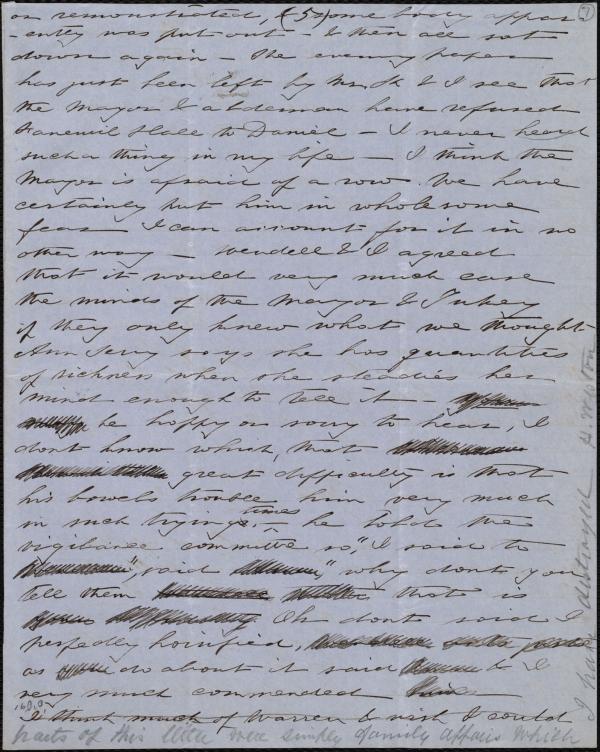 or remonstrated, (5) some body appar 7
-ently was put out - & then all sat
down again - The evening paper
has just been left by Mr. H & I see that
the Mayor & aldermen have refused
Faneuil Hall to Daniel - I never heard
such a thing in my life - I think the
Mayor is afraid of a row. We have
certainly put him in wholesome
fear I can account for it in no
other way - Wendell & I agreed
that it would very much ease
the minds of the Mayor & Tukey
if they only knew what we thought
Ann Terry says she has quantities
of richness when she steadies her
mind enough to tell it -
be happy or sorry to hear, I
dont know which, that
great difficulty is that
his bowels trouble him very much
in such trying times - he told the
vigilance committee so, " I said to
", said " why dont you
tell them that is
Oh dont said I
perfectly horrified,
as do about it said & I
very much commended
I think much of Warren & wish I could
parts of this letter were simply family affairs which
I have destroyed